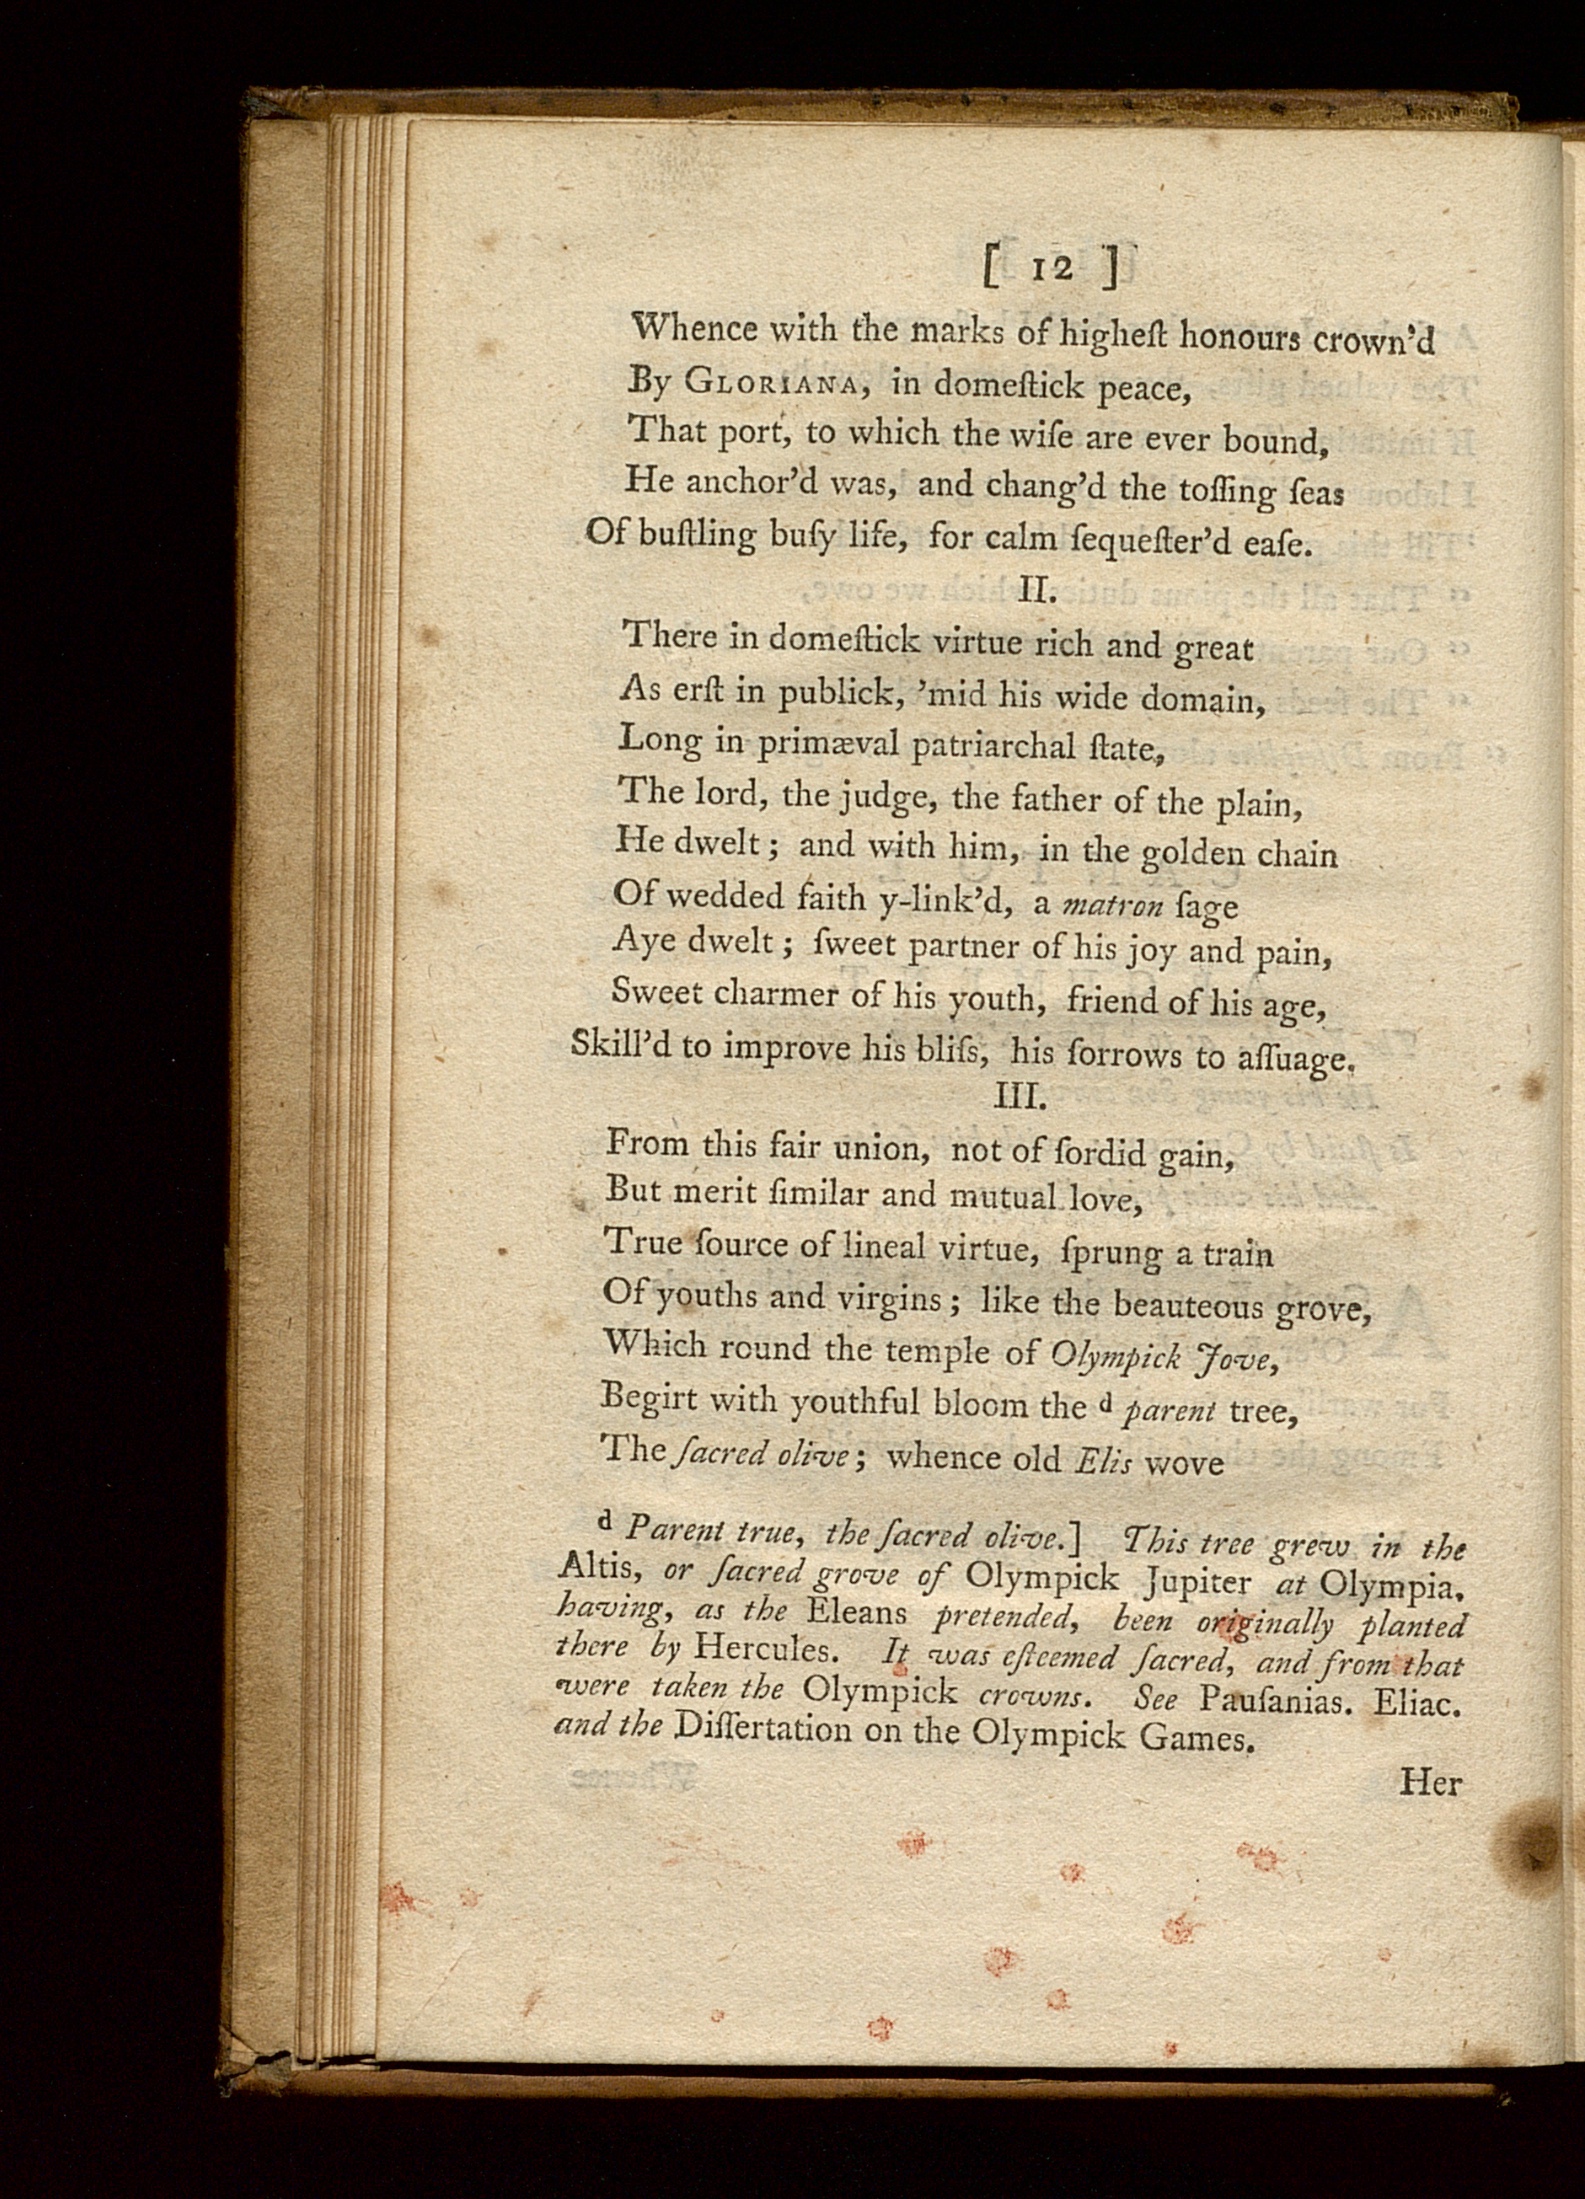 [ 12 ]
Whence with the marks of higheſt honours crown'd
By GLORIANA, in domeſtick peace,
That port, to which the wiſe are ever bound,
He anchor'd was, and chang'd the toſſing ſeas
Of buſtling buſy life, for calm ſequeſter'd eaſe.
II.
There in domeſtick virtue rich and great
As erſt in publick, 'mid his wide domain,
Long in primæval patriarchal ſtate,
The lord, the judge, the father of the plain,
He dwelt; and with him, in the golden chain
Of wedded faith y-link'd, a matron ſage
Aye dwelt; ſweet partner of his joy and pain,
Sweet charmer of his youth, friend of his age,
Skill'd to improve his bliſs, his ſorrows to aſſuage.
III.
From this fair union, not of ſordid gain,
But merit ſimilar and mutual love,
True ſource of lineal virtue, ſprung a train
Of youths and virgins; like the beauteous grove,
Which round the temple of Olympick Jove,
Begirt with youthful bloom the d parent tree,
The ſacred olive; whence old Elis wove
d Parent true, the ſacred olive.] This tree grew in the
Altis, or ſacred grove of Olympick Jupiter at Olympia,
having, as the Eleans pretended, been originally planted
there by Hercules. It was eſteemed ſacred, and from that
were taken the Olympick crowns. See Pauſanias. Eliac.
and the Diſſertation on the Olympick Games.
Her